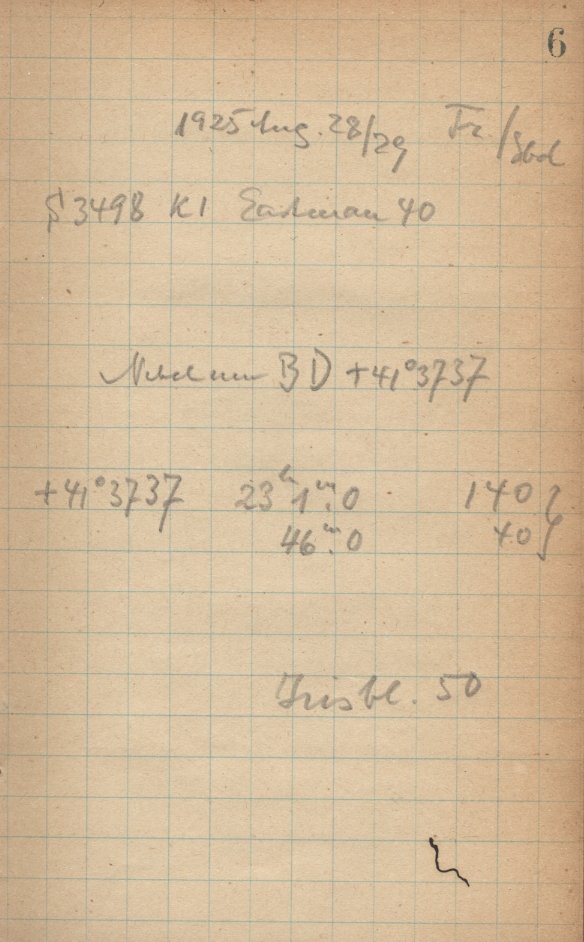 6
1925 Aug. 28/29 Fr./
3498 K1 Eastman 40
BD +41°3737
+41°3737 23ʰ1ᵐ.0 140
46ᵐ.0 40
Irisbl. 50